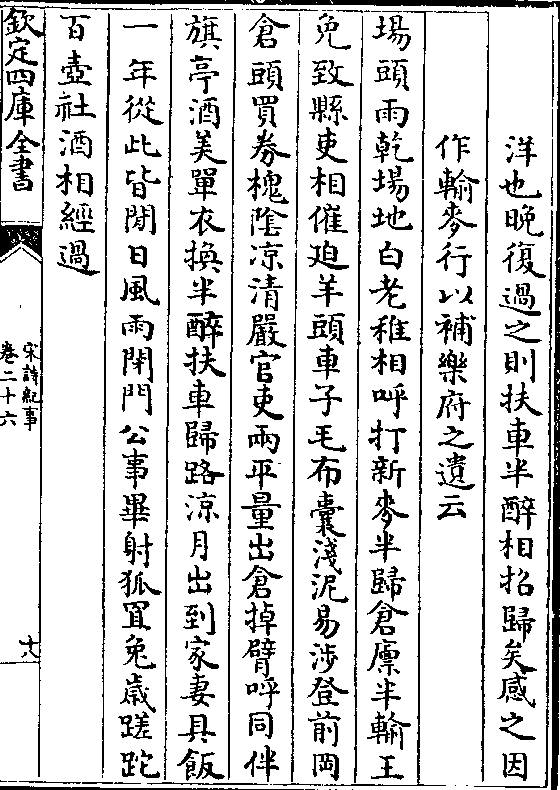 洋也晚復過之則扶車半醉相招歸矣感之因
作輸麥行以補樂府之遺云
場頭雨乾場地白老稚相呼打新麥半歸倉廪半輸王
免致縣吏相催迫羊頭車子毛布囊淺泥易涉登前岡
倉頭買券槐陰凉清嚴官吏兩平量出倉掉臂呼同伴
旗亭酒美單衣換半醉扶車歸路涼月出到家妻具飯
一年從此皆閒日風雨閉門公事畢射狐罝兔歲蹉跎
百壺社酒相經過
欽定四庫全書
宋詩紀事
卷二十六
十八